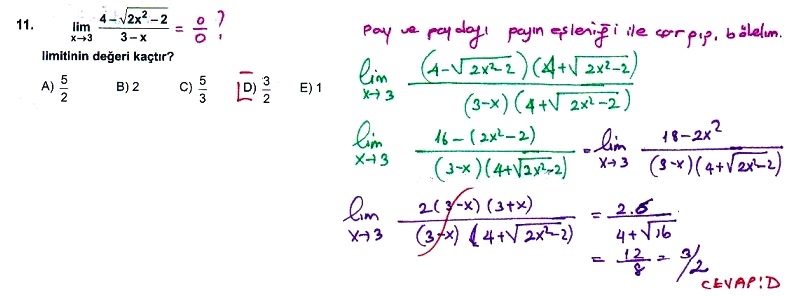 11. lim x→3 (4 − √(2x² − 2)) / (3 − x) = 0/0 ?
limitinin değeri kaçtır?
A) 5/2 B) 2 C) 5/3 D) 3/2 E) 1
pay ve paydayı payın eşleniği ile çarpıp, bölelim.
lim x→3 (4−√(2x²−2)) (4+√(2x²−2)) / (3−x) (4+√(2x²−2))
lim x→3 16−(2x²−2) / (3−x)(4+√(2x²−2)) = lim x→3 18−2x² / (3−x)(4+√(2x²−2))
lim x→3 2(3−x)(3+x) / (3−x)(4+√(2x²−2)) = 2.6 / 4+√16
= 12/8 = 3/2
CEVAP:D